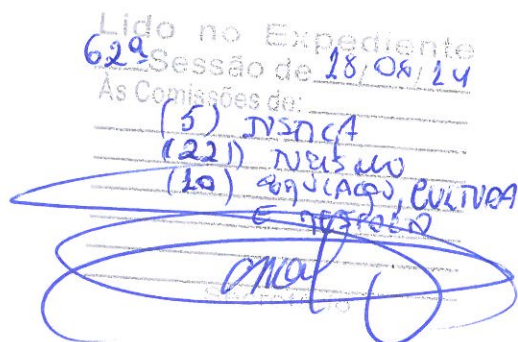 Lido no Expediente
62ª Sessão de 28/08/24
Às Comissões de:
(5) JUSTIÇA
(221) TURISMO
(10) EDUCAÇÃO, CULTURA
E
Secretário